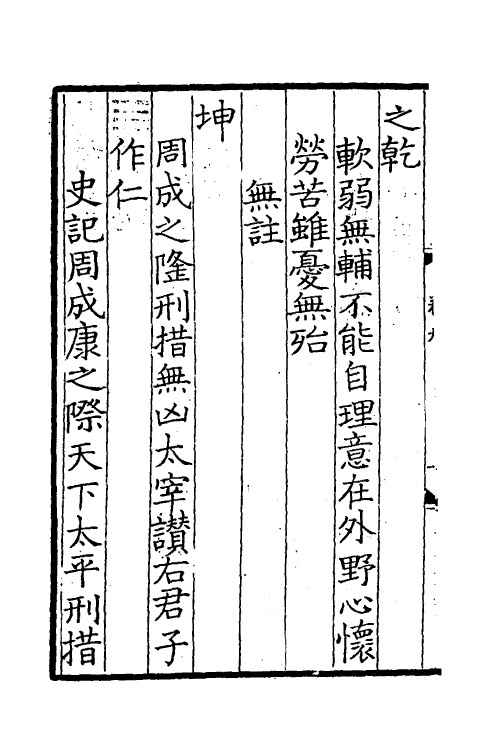 之乾
軟弱無輔不能自理意在外野心懷
勞苦雖憂無殆
無註
坤
周成之隆刑措無凶太宰讃右君子
作仁
史記周成康之際天下太平刑措